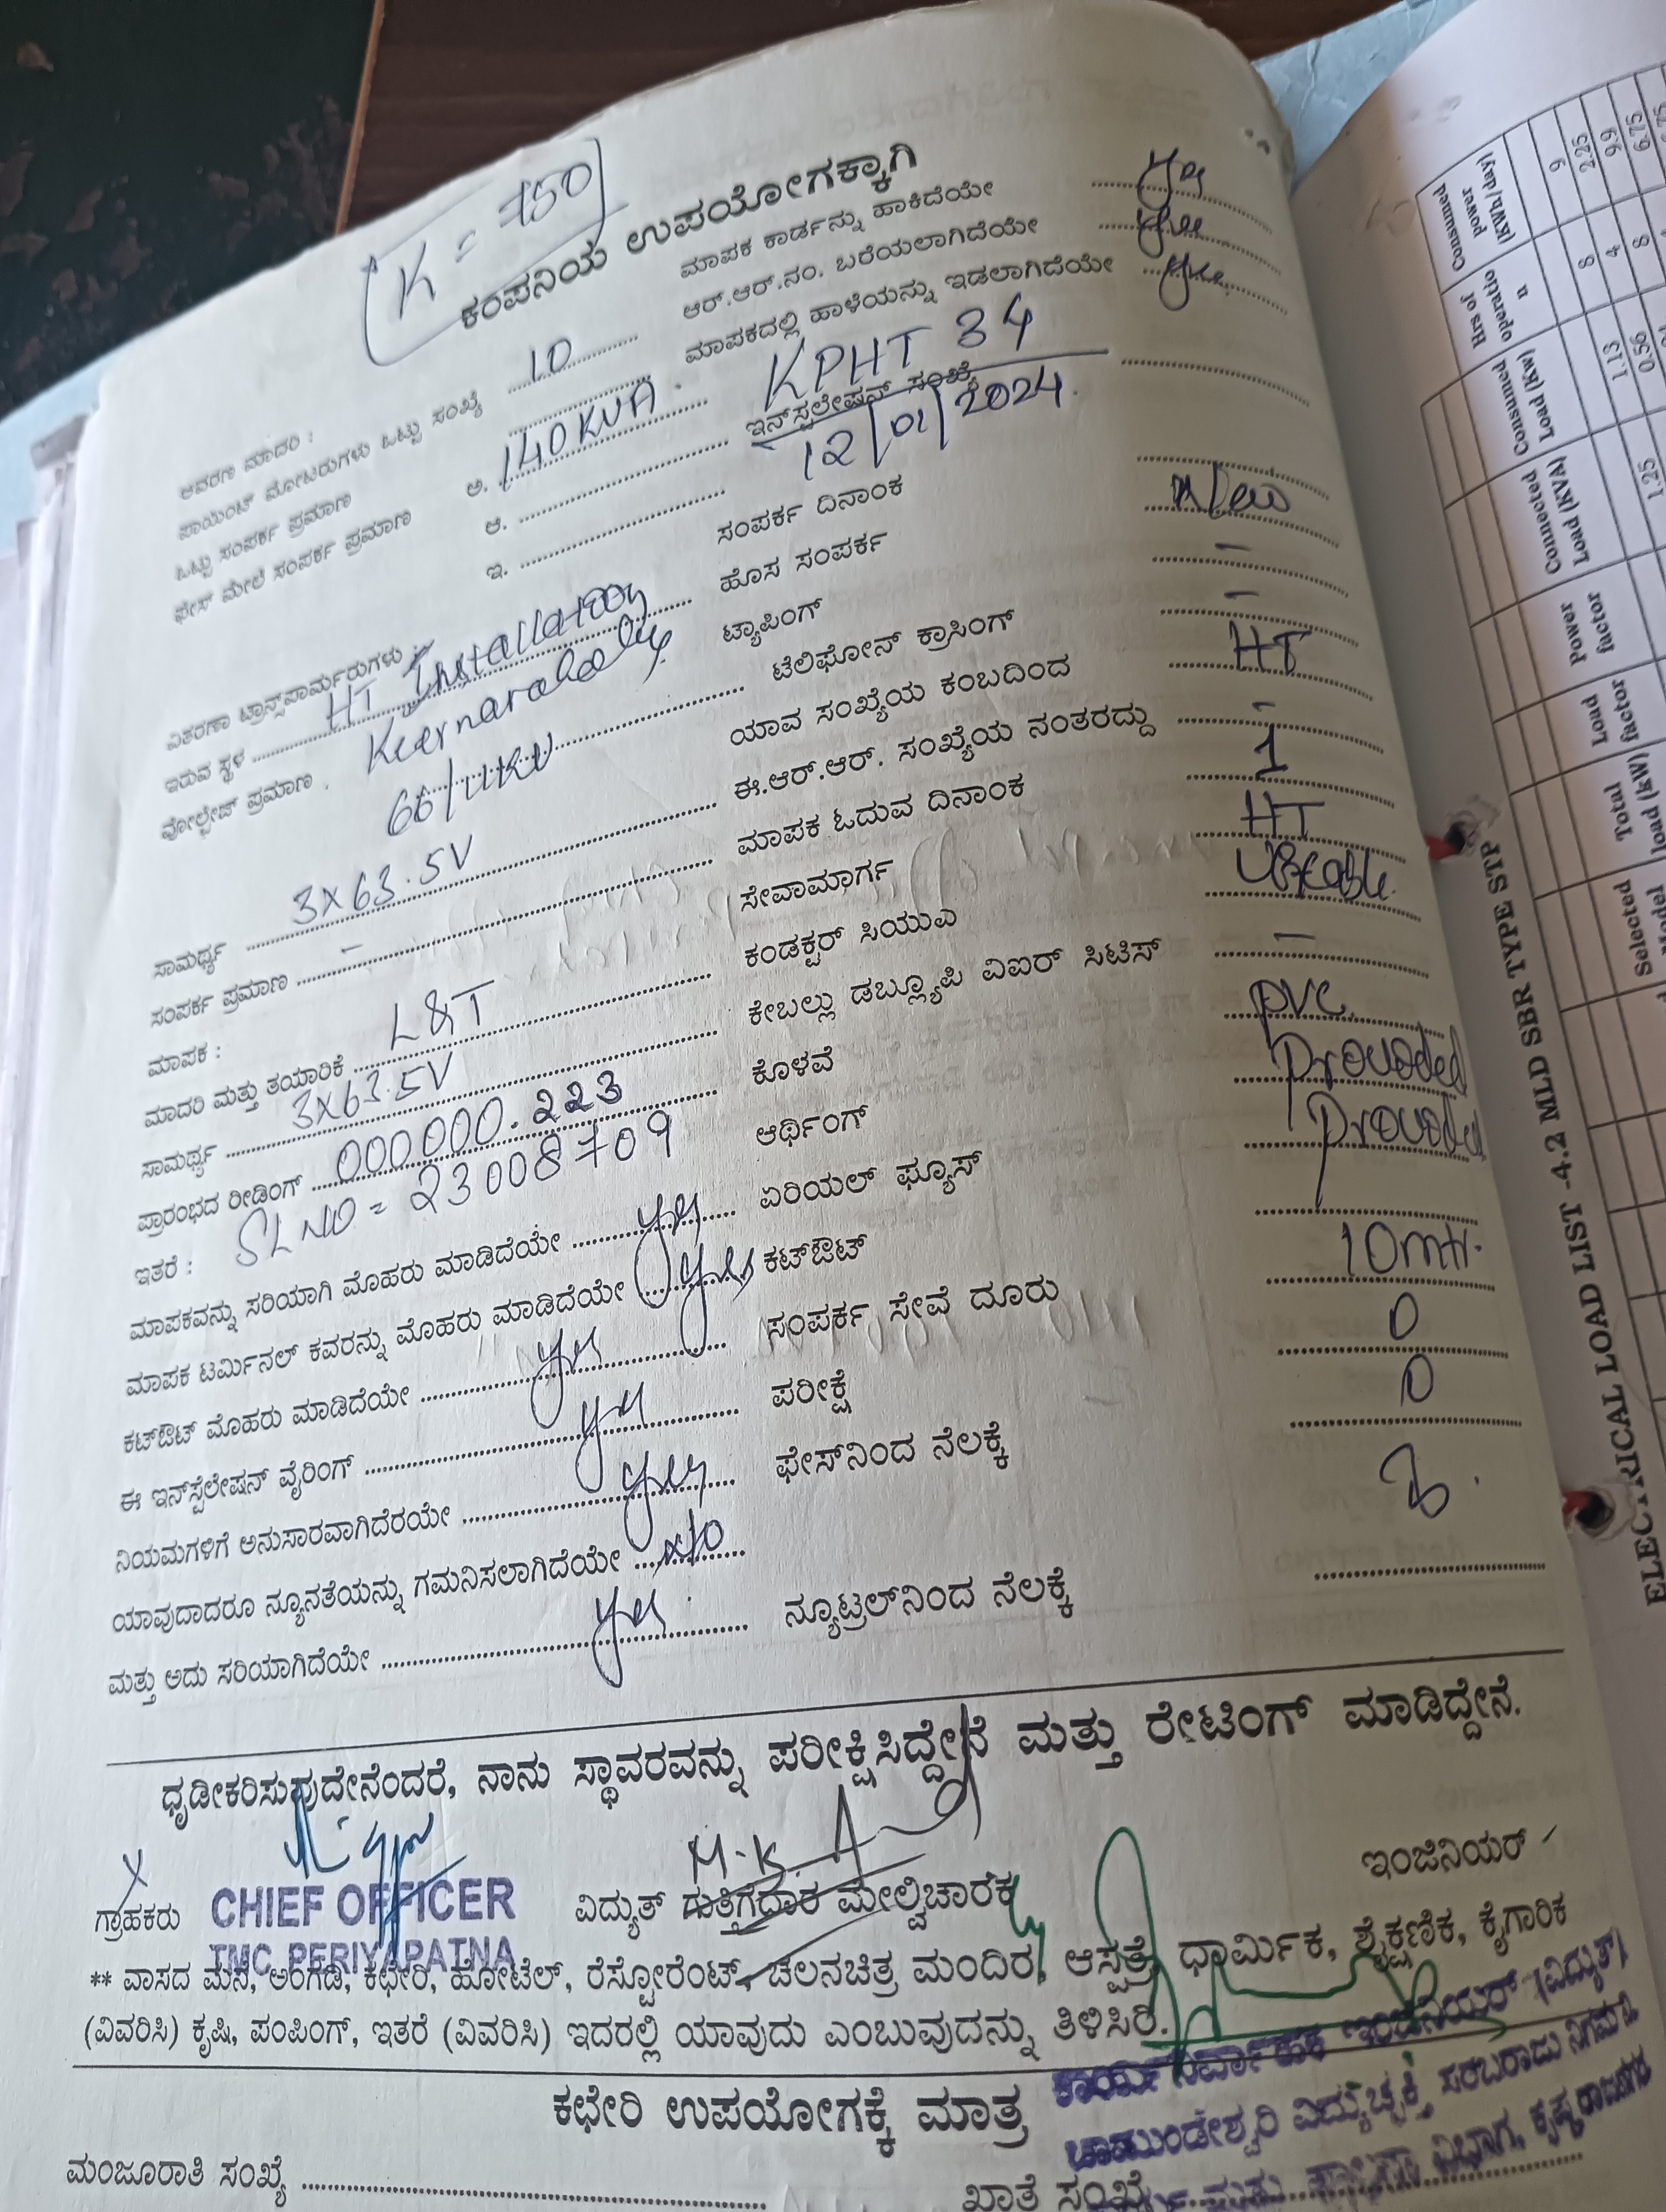 K = 750
ಕಂಪನಿಯ ಉಪಯೋಗಕ್ಕಾಗಿ
ಮಾಪಕ ಕಾರ್ಡನ್ನು ಹಾಕಿದೆಯೇ yes
ಆರ್.ಆರ್.ನಂ. ಬರೆಯಲಾಗಿದೆಯೇ yes
ಮಾಪಕದಲ್ಲಿ ಹಾಳೆಯನ್ನು ಇಡಲಾಗಿದೆಯೇ yes
ಆವರಣ ಮಾದರಿ :
ಪಾಯಿಂಟ್ ಮೋಟರುಗಳು ಒಟ್ಟು ಸಂಖ್ಯೆ 10
ಒಟ್ಟು ಸಂಪರ್ಕ ಪ್ರಮಾಣ
ಫೇಸ್ ಮೇಲೆ ಸಂಪರ್ಕ ಪ್ರಮಾಣ ಅ. 140 KVA.
ಆ.
ಇ.
KPHT 34
ಇನ್‌ಸ್ಟಲೇಷನ್ ಸಂಖ್ಯೆ
12/01/2024.
ಸಂಪರ್ಕ ದಿನಾಂಕ
ಹೊಸ ಸಂಪರ್ಕ New
ಟ್ಯಾಪಿಂಗ್ –
ಟೆಲಿಫೋನ್ ಕ್ರಾಸಿಂಗ್ –
ಯಾವ ಸಂಖ್ಯೆಯ ಕಂಬದಿಂದ HT
ಈ.ಆರ್.ಆರ್. ಸಂಖ್ಯೆಯ ನಂತರದ್ದು –
ಮಾಪಕ ಓದುವ ದಿನಾಂಕ 1
ಸೇವಾಮಾರ್ಗ HT
ಕಂಡಕ್ಟರ್ ಸಿಯುಎ
ಕೇಬಲ್ಲು ಡಬ್ಲ್ಯೂಪಿ ವಿಐರ್ ಸಿಟಿಸ್ –
ಕೊಳವೆ PVC.
ಆರ್ಥಿಂಗ್ Provided
ಏರಿಯಲ್ ಫ್ಯೂಸ್ Provided
ಕಟ್‌ಔಟ್
ಸಂಪರ್ಕ ಸೇವೆ ದೂರು 10mtr.
ಪರೀಕ್ಷೆ 0
ಫೇಸ್‌ನಿಂದ ನೆಲಕ್ಕೆ 0
ನ್ಯೂಟ್ರಲ್‌ನಿಂದ ನೆಲಕ್ಕೆ
ವಿತರಣಾ ಟ್ರಾನ್ಸ್‌ಫಾರ್ಮರುಗಳು :
ಇರುವ ಸ್ಥಳ HT Installation
ವೋಲ್ಟೇಜ್ ಪ್ರಮಾಣ .
66/11KV
ಸಾಮರ್ಥ್ಯ 3X63.5V
ಸಂಪರ್ಕ ಪ್ರಮಾಣ –
ಮಾಪಕ :
ಮಾದರಿ ಮತ್ತು ತಯಾರಿಕೆ L&T
ಸಾಮರ್ಥ್ಯ 3X63.5V
ಪ್ರಾರಂಭದ ರೀಡಿಂಗ್ 000000.223
ಇತರೆ : SL NO = 23008709
ಮಾಪಕವನ್ನು ಸರಿಯಾಗಿ ಮೊಹರು ಮಾಡಿದೆಯೇ yes
ಮಾಪಕ ಟರ್ಮಿನಲ್ ಕವರನ್ನು ಮೊಹರು ಮಾಡಿದೆಯೇ yes
ಕಟ್‌ಔಟ್ ಮೊಹರು ಮಾಡಿದೆಯೇ yes
ಈ ಇನ್‌ಸ್ಟಲೇಷನ್ ವೈರಿಂಗ್ yes
ನಿಯಮಗಳಿಗೆ ಅನುಸಾರವಾಗಿದೆರಯೇ yes
ಯಾವುದಾದರೂ ನ್ಯೂನತೆಯನ್ನು ಗಮನಿಸಲಾಗಿದೆಯೇ No
ಮತ್ತು ಅದು ಸರಿಯಾಗಿದೆಯೇ yes
ಧೃಡೀಕರಿಸುವುದೇನೆಂದರೆ, ನಾನು ಸ್ಥಾವರವನ್ನು ಪರೀಕ್ಷಿಸಿದ್ದೇನೆ ಮತ್ತು ರೇಟಿಂಗ್ ಮಾಡಿದ್ದೇನೆ.
ಗ್ರಾಹಕರು
CHIEF OFFICER
TMC PERIYAPATNA
ವಿದ್ಯುತ್ ಗುತ್ತಿಗೆದಾರ ಮೇಲ್ವಿಚಾರಕ
ಇಂಜಿನಿಯರ್
** ವಾಸದ ಮನೆ, ಅಂಗಡಿ, ಕಛೇರಿ, ಹೋಟೆಲ್, ರೆಸ್ಟೋರೆಂಟ್, ಚಲನಚಿತ್ರ ಮಂದಿರ, ಆಸ್ಪತ್ರೆ, ಧಾರ್ಮಿಕ, ಶೈಕ್ಷಣಿಕ, ಕೈಗಾರಿಕ
(ವಿವರಿಸಿ) ಕೃಷಿ, ಪಂಪಿಂಗ್, ಇತರೆ (ವಿವರಿಸಿ) ಇದರಲ್ಲಿ ಯಾವುದು ಎಂಬುವುದನ್ನು ತಿಳಿಸಿರಿ.
ಕಾರ್ಯನಿರ್ವಾಹಕ ಇಂಜಿನಿಯರ್ (ವಿದ್ಯುತ್)
ಚಾಮುಂಡೇಶ್ವರಿ ವಿದ್ಯುಚ್ಛಕ್ತಿ ಸರಬರಾಜು ನಿಗಮ
ಕಛೇರಿ ಉಪಯೋಗಕ್ಕೆ ಮಾತ್ರ
ಮಂಜೂರಾತಿ ಸಂಖ್ಯೆ
ಖಾತೆ ಸಂಖ್ಯೆ
ELECTRICAL LOAD LIST -4.2 MLD SBR TYPE STP
Selected
Total load (kW)
Load factor
Power factor
Connected Load (KVA)
Consumed Load (Kw)
Hrs of operation
Consumed power (KWh/day)
1.25
1.13
0.56
8
4
8
9
2.25
9.9
6.75